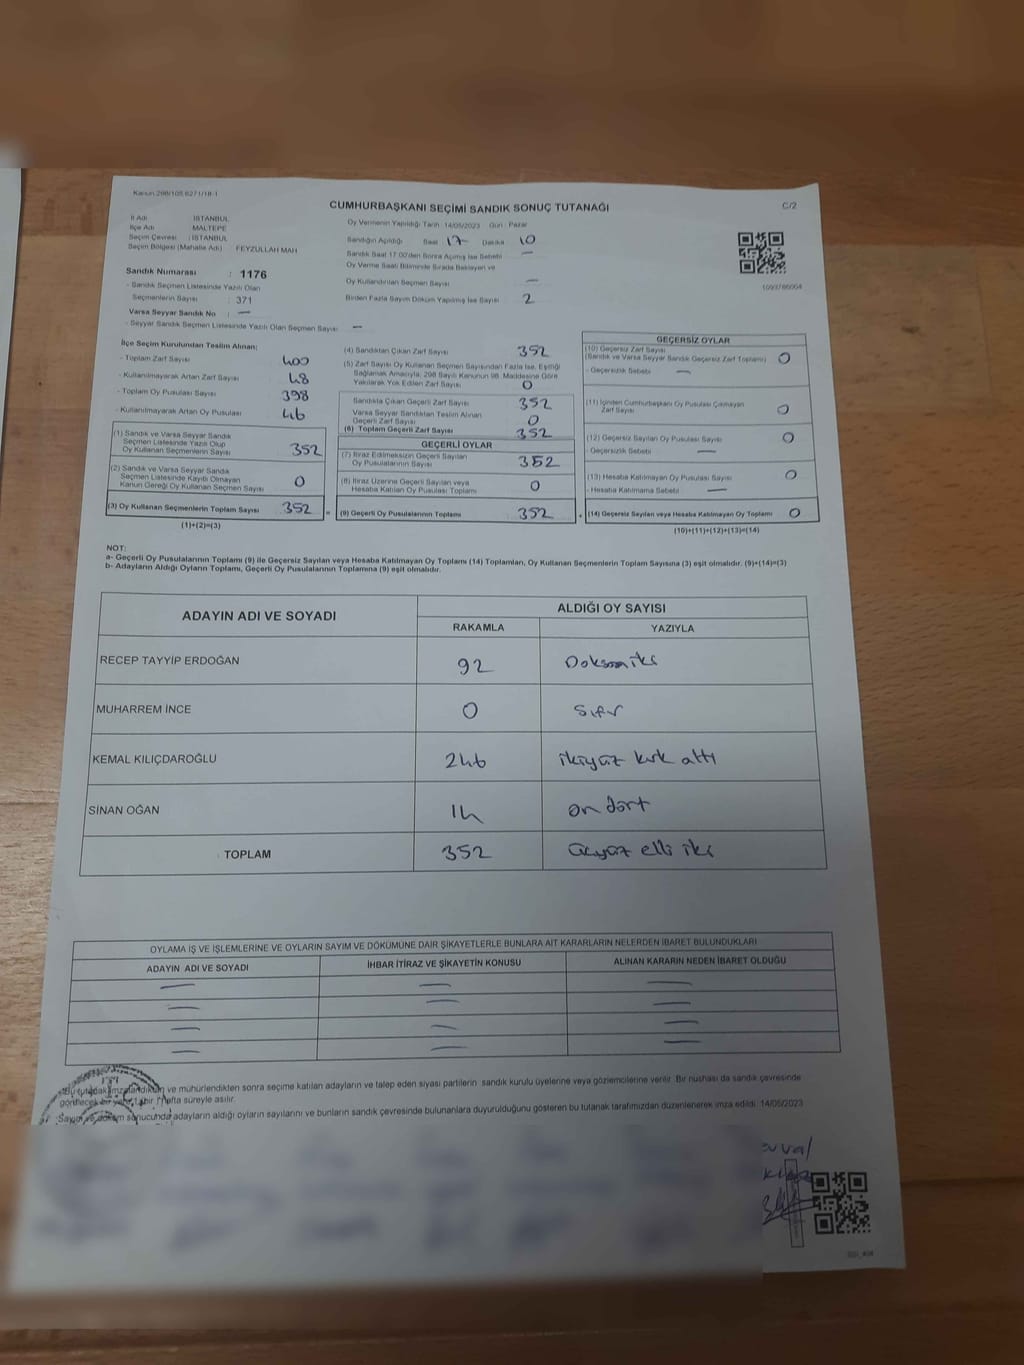 Kanun:298/105 6271/18-1
CUMHURBAŞKANI SEÇİMİ SANDIK SONUÇ TUTANAĞI
C/2
İl Adı : İSTANBUL
İlçe Adı : MALTEPE
Seçim Çevresi : İSTANBUL
Seçim Bölgesi (Mahalle Adı) : FEYZULLAH MAH
Sandık Numarası : 1176
- Sandık Seçmen Listesinde Yazılı Olan
Seçmenlerin Sayısı : 371
Varsa Seyyar Sandık No : —
- Seyyar Sandık Seçmen Listesinde Yazılı Olan Seçmen Sayısı : —
Oy Vermenin Yapıldığı Tarih 14/05/2023 Gün : Pazar
Sandığın Açıldığı Saat 17 Dakika 10
Sandık Saat 17:00'den Sonra Açılmış İse Sebebi —
Oy Verme Saati Bitiminde Sırada Bekleyen ve
Oy Kullandırılan Seçmen Sayısı —
Birden Fazla Sayım Döküm Yapılmış İse Sayısı 2
İlçe Seçim Kurulundan Teslim Alınan:
- Toplam Zarf Sayısı 400
- Kullanılmayarak Artan Zarf Sayısı 48
- Toplam Oy Pusulası Sayısı 398
- Kullanılmayarak Artan Oy Pusulası 46
(1) Sandık ve Varsa Seyyar Sandık
Seçmen Listesinde Yazılı Olup
Oy Kullanan Seçmenlerin Sayısı 352
(2) Sandık ve Varsa Seyyar Sandık
Seçmen Listesinde Kayıtlı Olmayan
Kanun Gereği Oy Kullanan Seçmen Sayısı 0
(3) Oy Kullanan Seçmenlerin Toplam Sayısı 352 =
(1)+(2)=(3)
(4) Sandıktan Çıkan Zarf Sayısı 352
(5) Zarf Sayısı Oy Kullanan Seçmen Sayısından Fazla İse, Eşitliği
Sağlamak Amacıyla, 298 Sayılı Kanunun 98. Maddesine Göre
Yakılarak Yok Edilen Zarf Sayısı 0
Sandıkta Çıkan Geçerli Zarf Sayısı 352
Varsa Seyyar Sandıktan Teslim Alınan
Geçerli Zarf Sayısı 0
(6) Toplam Geçerli Zarf Sayısı 352
GEÇERLİ OYLAR
(7) İtiraz Edilmeksizin Geçerli Sayılan
Oy Pusulalarının Sayısı 352
(8) İtiraz Üzerine Geçerli Sayılan veya
Hesaba Katılan Oy Pusulası Toplamı 0
(9) Geçerli Oy Pusulalarının Toplamı 352 +
GEÇERSİZ OYLAR
(10) Geçersiz Zarf Sayısı
(Sandık ve Varsa Seyyar Sandık Geçersiz Zarf Toplamı) 0
- Geçersizlik Sebebi —
(11) İçinden Cumhurbaşkanı Oy Pusulası Çıkmayan
Zarf Sayısı 0
(12) Geçersiz Sayılan Oy Pusulası Sayısı 0
- Geçersizlik Sebebi —
(13) Hesaba Katılmayan Oy Pusulası Sayısı 0
- Hesaba Katılmama Sebebi —
(14) Geçersiz Sayılan veya Hesaba Katılmayan Oy Toplamı 0
(10)+(11)+(12)+(13)=(14)
NOT:
a- Geçerli Oy Pusulalarının Toplamı (9) ile Geçersiz Sayılan veya Hesaba Katılmayan Oy Toplamı (14) Toplamları, Oy Kullanan Seçmenlerin Toplam Sayısına (3) eşit olmalıdır. (9)+(14)=(3)
b- Adayların Aldığı Oyların Toplamı, Geçerli Oy Pusulalarının Toplamına (9) eşit olmalıdır.
ADAYIN ADI VE SOYADI ALDIĞI OY SAYISI
RAKAMLA YAZIYLA
RECEP TAYYİP ERDOĞAN 92 Doksan iki
MUHARREM İNCE 0 Sıfır
KEMAL KILIÇDAROĞLU 246 ikiyüz kırk altı
SİNAN OĞAN 14 on dört
TOPLAM 352 üçyüz elli iki
OYLAMA İŞ VE İŞLEMLERİNE VE OYLARIN SAYIM VE DÖKÜMÜNE DAİR ŞİKAYETLERLE BUNLARA AİT KARARLARIN NELERDEN İBARET BULUNDUKLARI
ADAYIN ADI VE SOYADI İHBAR İTİRAZ VE ŞİKAYETİN KONUSU ALINAN KARARIN NEDEN İBARET OLDUĞU
— — —
— — —
— — —
— — —
ve mühürlendikten sonra seçime katılan adayların ve talep eden siyasi partilerin sandık kurulu üyelerine veya gözlemcilerine verilir. Bir nüshası da sandık çevresinde
hafta süreyle asılır.
sonucunda adayların aldığı oyların sayılarını ve bunların sandık çevresinde bulunanlara duyurulduğunu gösteren bu tutanak tarafımızdan düzenlenerek imza edildi. 14/05/2023